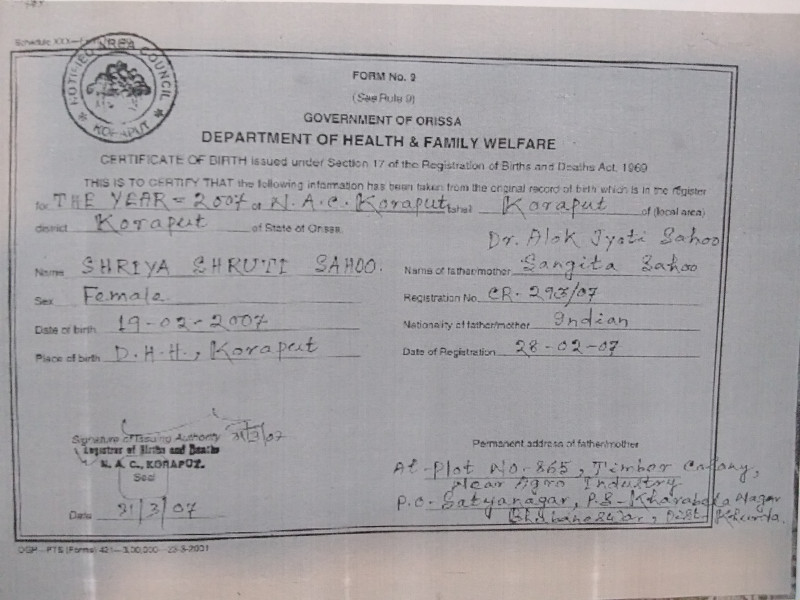 Schedule XXX—Form
NOTIFIED AREA COUNCIL
★ KORAPUT ★
FORM No. 9
(See Rule 9)
GOVERNMENT OF ORISSA
DEPARTMENT OF HEALTH & FAMILY WELFARE
CERTIFICATE OF BIRTH issued under Section 17 of the Registration of Births and Deaths Act, 1969
THIS IS TO CERTIFY THAT the following information has been taken from the original record of birth which is in the register
for THE YEAR = 2007 of N.A.C. Koraput tahsil Koraput of (local area)
district Koraput of State of Orissa.
Dr. Alok Jyoti Sahoo
Name SHRIYA SHRUTI SAHOO. Name of father/mother Sangita Sahoo
Sex Female Registration No. CR. 293/07
Date of birth 19-02-2007 Nationality of father/mother Indian
Place of birth D.H.H., Koraput Date of Registration 28-02-07
Signature of Issuing Authority 31/3/07
Registrar of Births and Deaths
N. A. C., KORAPUT.
Seal
Date 31/3/07
Permanent address of father/mother
At-Plot No-865, Timber Colony,
Near Agro Industry
P.O. Satyanagar, P.S-Kharabela Nagar
Bhubaneswar, Dist. Khurda.
OGP—PTS (Forms) 421—3,00,000—23-3-2001